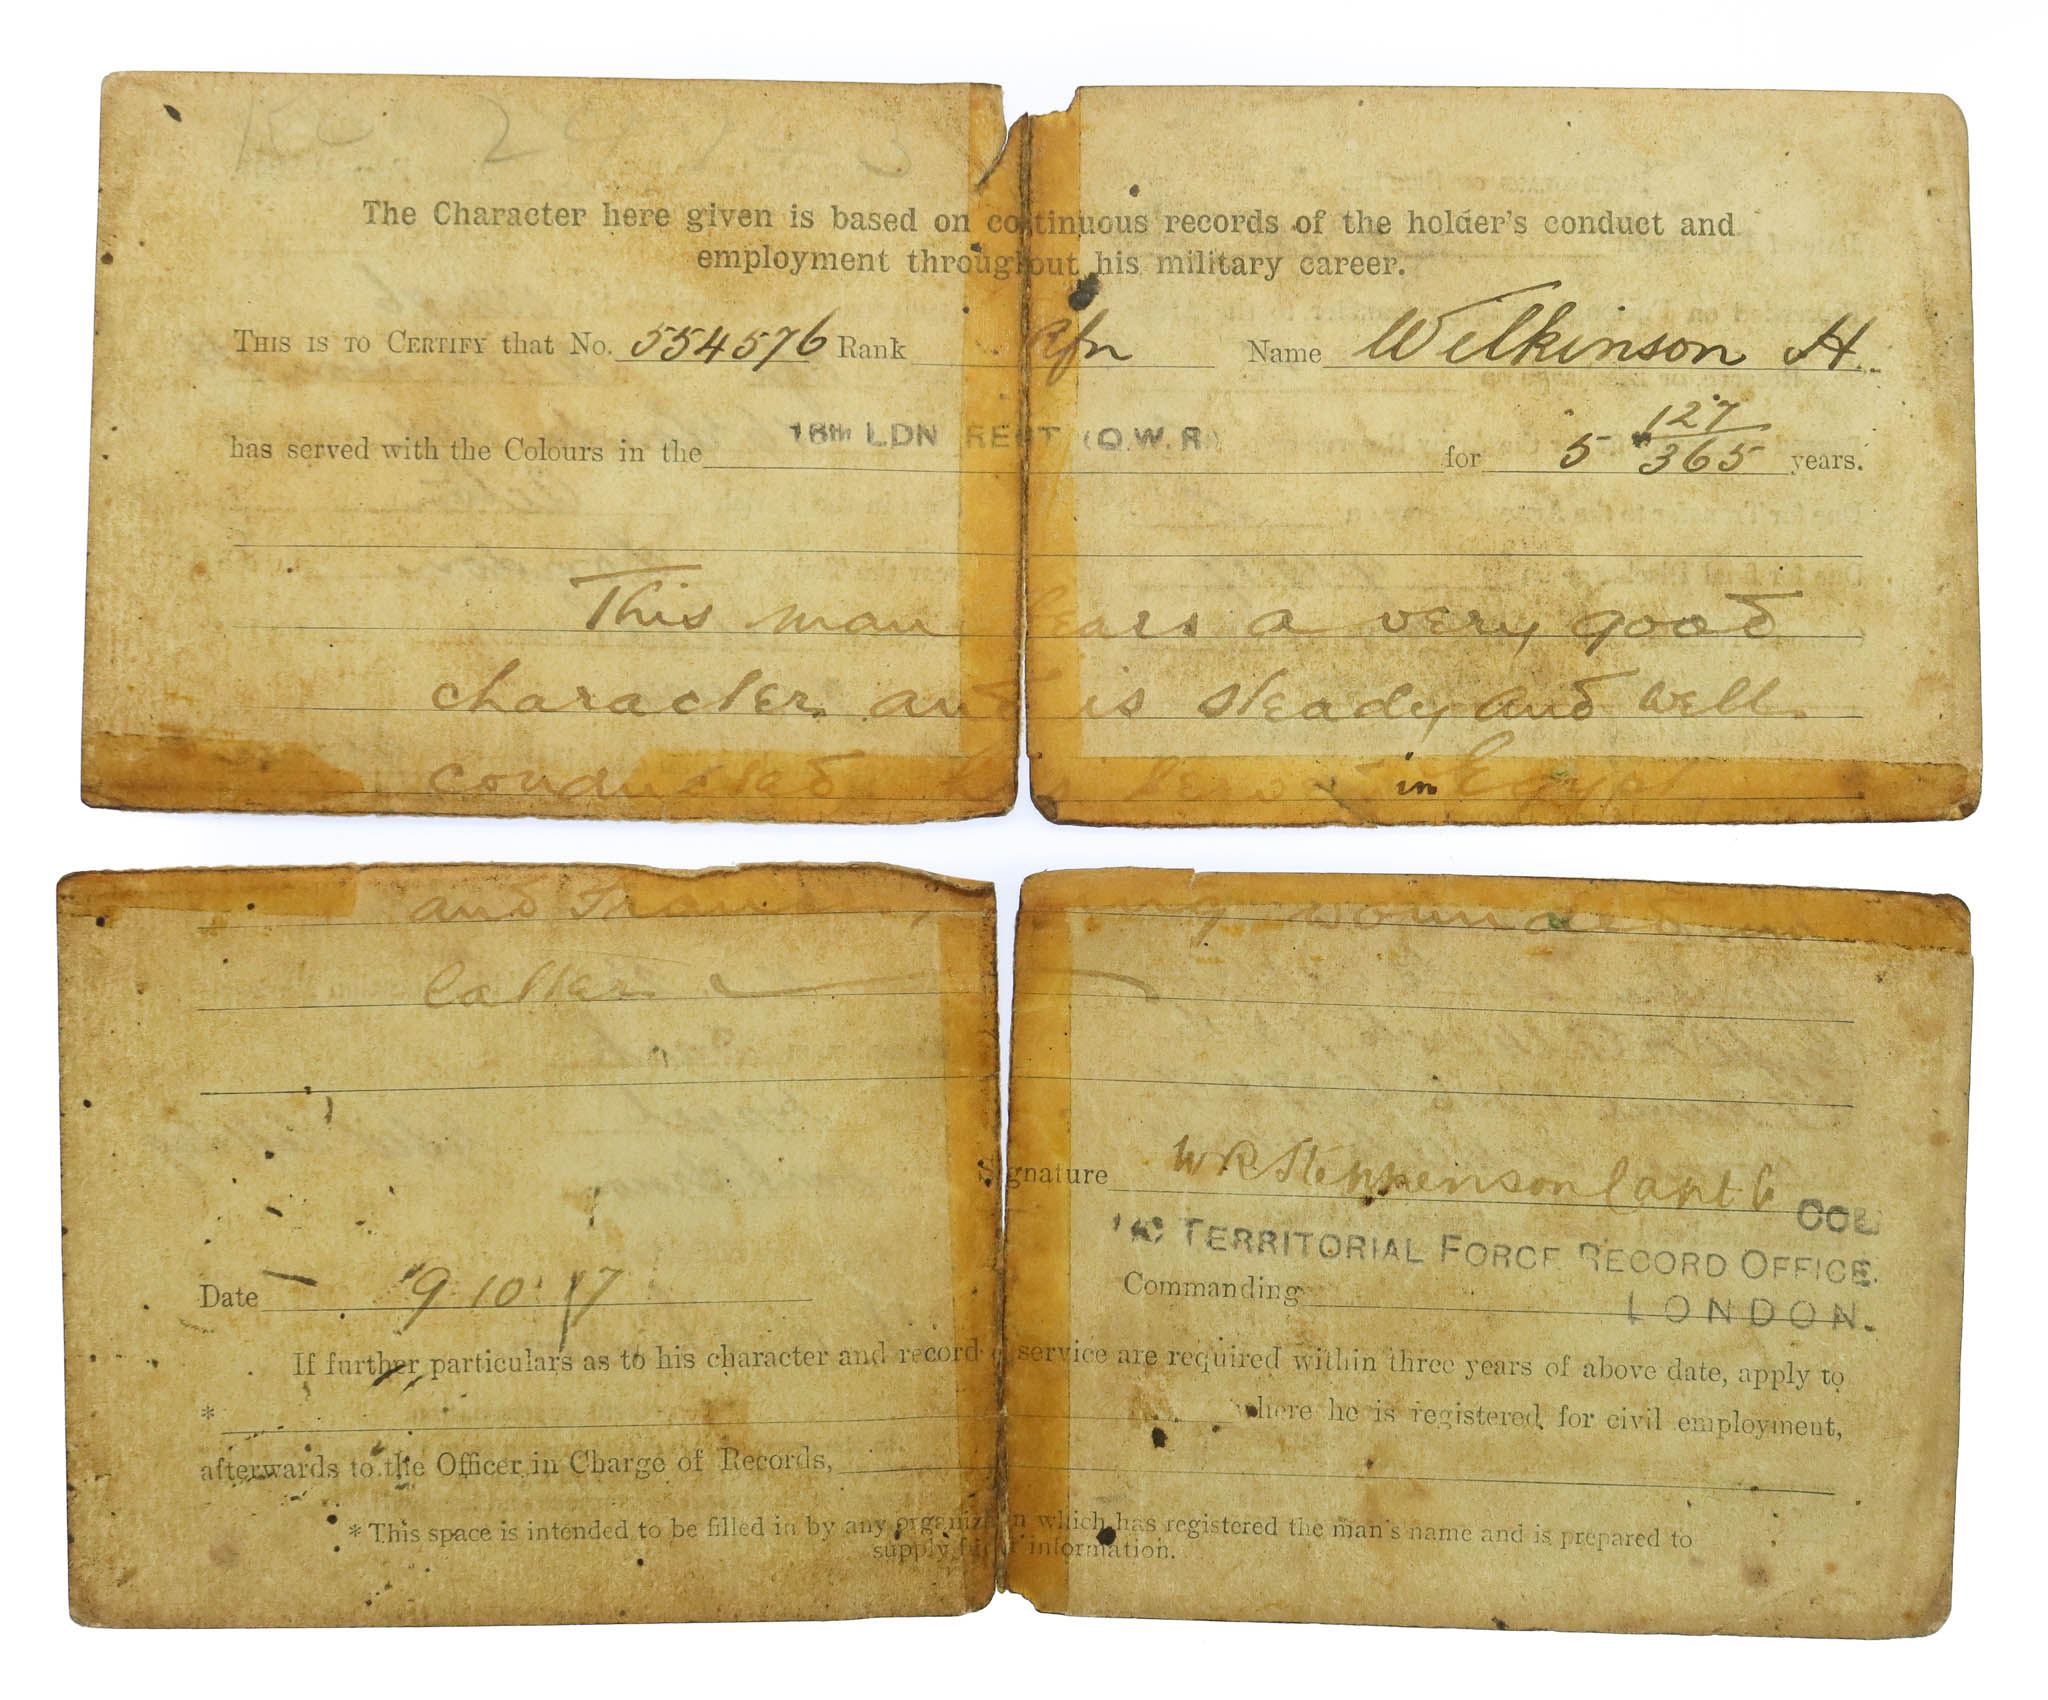 The Character here given is based on continuous records of the holder's conduct and
employment throughout his military career.
THIS IS TO CERTIFY that No. 554576 Rank Rfn Name Wilkinson H.
has served with the Colours in the 16th LDN REGT (Q.W.R) for 5 127/365 years.
This man bears a very good
character and is steady and well
conducted his in Egypt
and being wounded
latter
Signature W R Stephenson Capt
TERRITORIAL FORCE RECORD OFFICE.
Date 9 10 17 Commanding LONDON.
If further particulars as to his character and record of service are required within three years of above date, apply to
* where he is registered for civil employment,
afterwards to the Officer in Charge of Records,
* This space is intended to be filled in by any organization which has registered the man's name and is prepared to
supply further information.